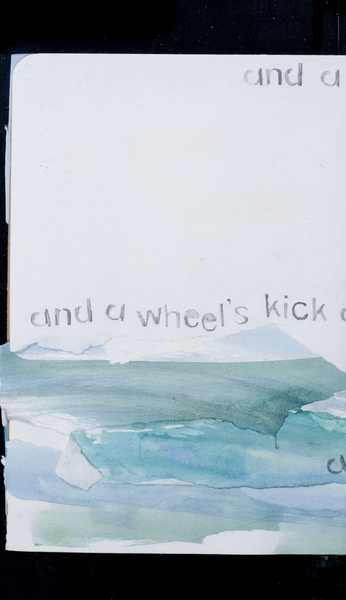 and a
and a wheel's kick